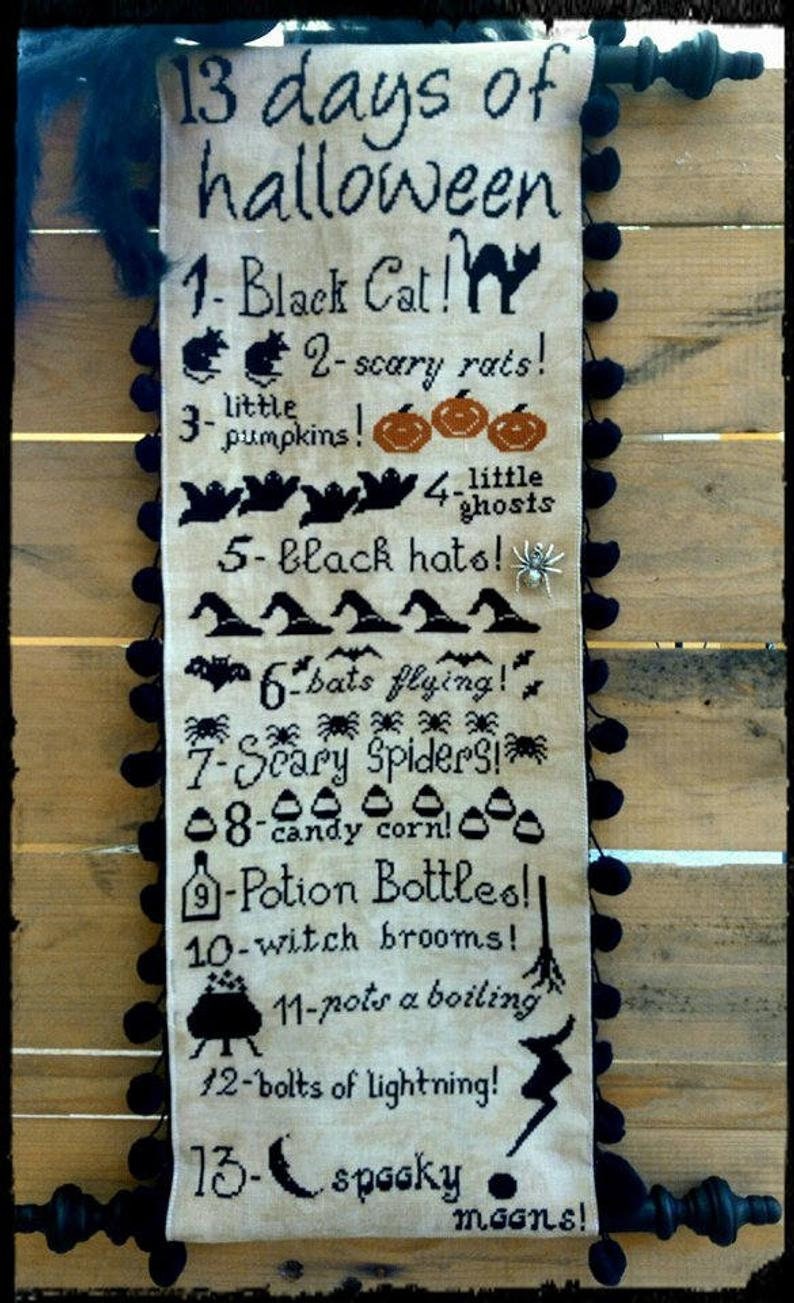 13 days of
halloween
1- Black Cat!
2- scary rats!
3- little
pumpkins!
4- little
ghosts
5- black hats!
6- bats flying!
7- Scary Spiders!
8- candy corn!
9 - Potion Bottles!
10- witch brooms!
11- pots a boiling
12- bolts of lightning!
13- spooky
moons!